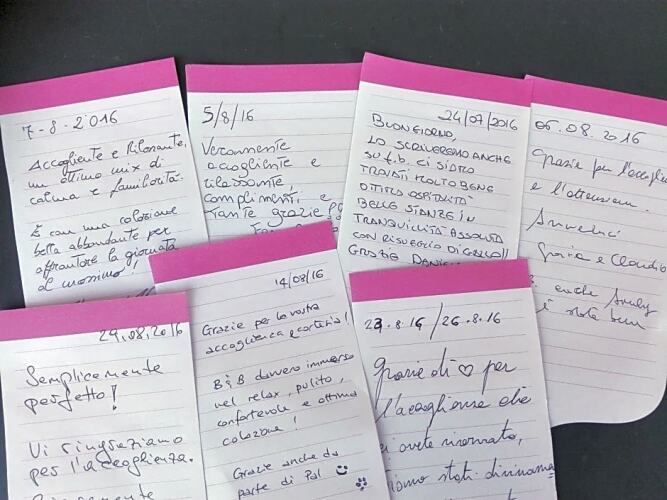 7-8-2016
Accogliente e Rilassante,
un ottimo mix di
calma e familiarità.
E con una colazione
bella abbondante per
affrontare la giornata
al massimo!
5/8/16
Veramente
accogliente e
rilassante,
complimenti e
tante grazie
24/07/2016
BUONGIORNO,
LO SCRIVEREMO ANCHE
SU f.b. CI SIAMO
TROVATI MOLTO BENE
OTTIMA OSPITALITÀ
BELLE STANZE IN
TRANQUILLITÀ ASSOLUTA
CON RISVEGLIO DI GALLO!!
GRAZIE
06.08.2016
Grazie per l'accoglien
e
Grazia e Claudio
anche
è stata bene
29.08.2016
Semplicemente
perfetto!
Vi ringraziamo
per l'accoglienza.
14/08/16
Grazie per la vostra
accoglienza e cortesia!
B&B davvero immerso
nel relax, pulito,
confortevole e ottima
colazione!
Grazie anche da
parte di Pal
23.8.16 / 26.8.16
Grazie di ♡ per
l'accoglienza che
ci avete riservato,
stati